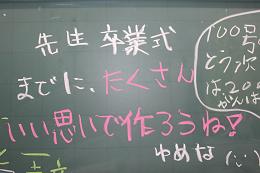 先生 卒業式
までに、たくさん
いい思いで作ろうね!
ゆめな
100号
どう次
は200
がんば